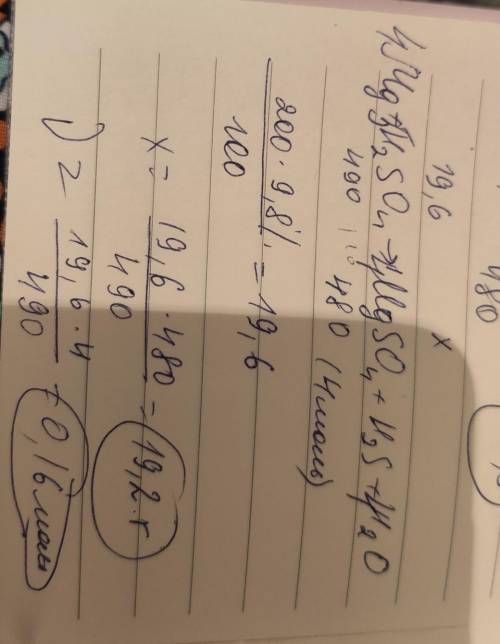 480
19,6 x
4Mg+5H₂SO₄→4MgSO₄+H₂S+4H₂O
490 480 (4моль)
200·9,8% / 100 = 19,6
x = 19,6·480 / 490 = 19,2 г
ν = 19,6·4 / 490 = 0,16 моль